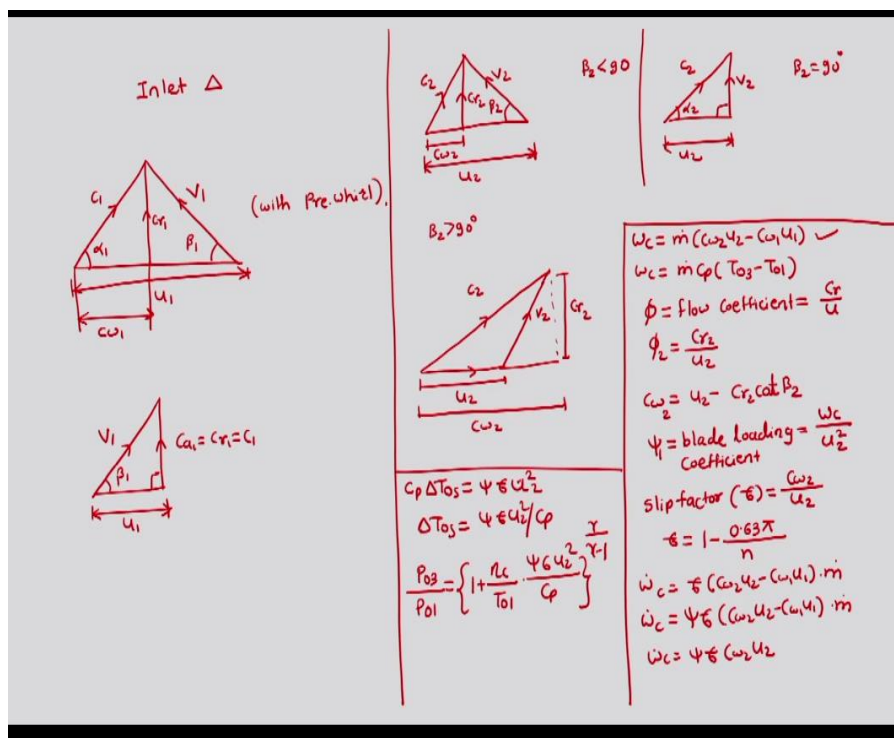 Inlet Δ
C1
V1
Cr1
α1
β1
u1
Cω1
(with Pre.whirl).
V1
Ca1 = Cr1 = C1
β1
u1
C2
V2
Cr2
β2
Cω2
u2
β2 < 90
C2
V2
α2
u2
β2 = 90°
β2 > 90°
C2
V2
Cr2
u2
Cω2
Cp ΔTos = ψ σ u2²
ΔTos = ψ σ u2²/Cp
P03/P01 = {1 + ηc/T01 · ψ σ u2²/Cp}^(γ/γ-1)
ωc = ṁ (Cω2 u2 - Cω1 u1) ✓
ωc = ṁ Cp (T03 - T01)
ϕ = flow coefficient = Cr/u
ϕ2 = Cr2/u2
Cω2 = u2 - Cr2 cot β2
ψ = blade loading = Wc/u2²
coefficient
slip factor (σ) = Cω2/u2
σ = 1 - 0.63π/n
ω̇c = σ (Cω2 u2 - Cω1 u1) · ṁ
ω̇c = ψ σ (Cω2 u2 - Cω1 u1) · ṁ
ω̇c = ψ σ Cω2 u2